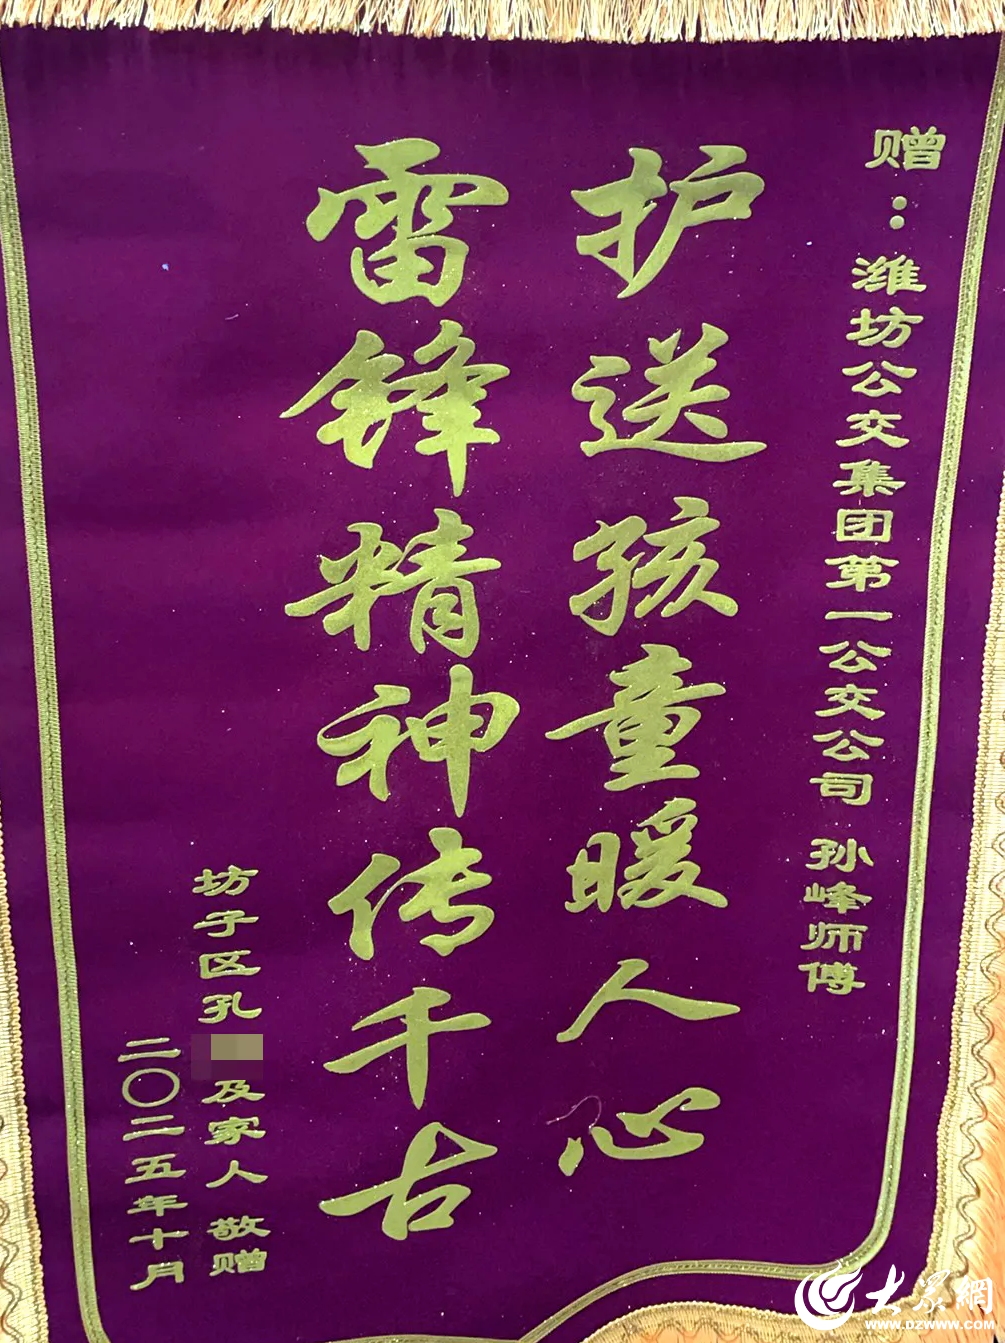 赠：潍坊公交集团第一公交公司 孙峰师傅
护送孩童暖人心
雷锋精神传千古
坊子区孔 及家人 敬赠
二〇二五年十月
大众網
www.DZWWW.com